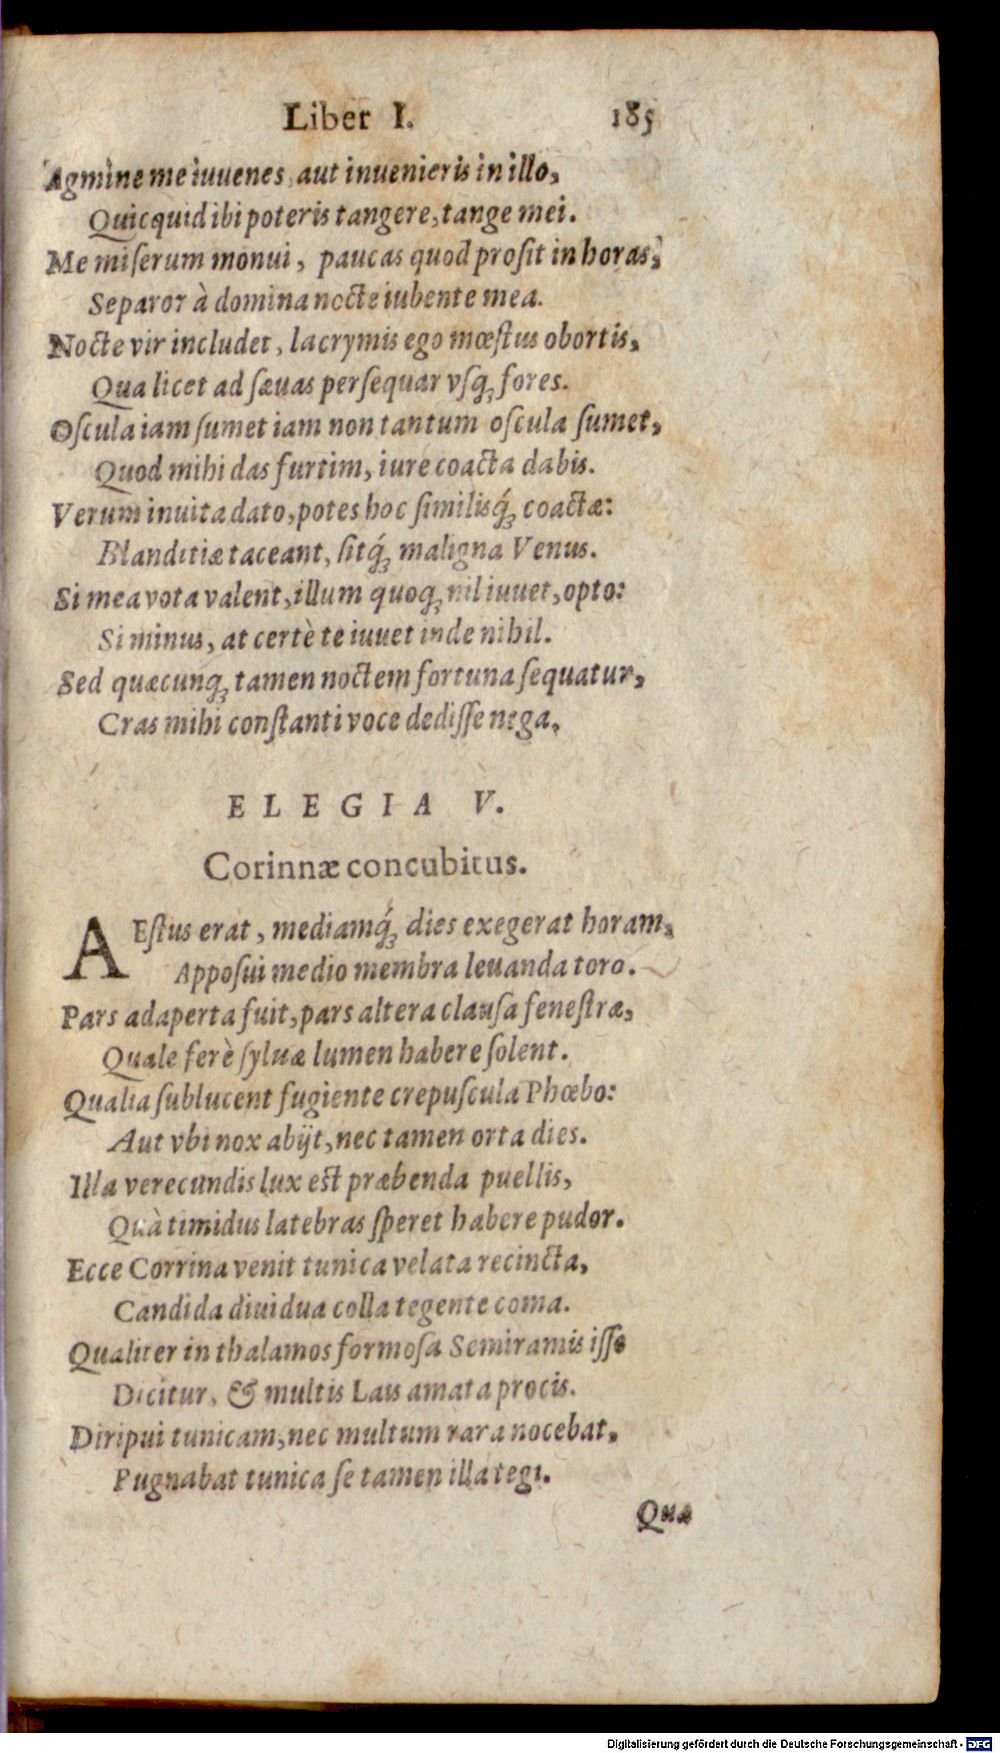 Liber I. 185
Agmine me iuuenes, aut inuenieris in illo,
Quicquid ibi poteris tangere, tange mei.
Me miſerum monui, paucas quod proſit in horas,
Separor à domina nocte iubente mea.
Nocte vir includet, lacrymis ego mœſtus obortis,
Qua licet ad ſæuas perſequar vſq; fores.
Oſcula iam ſumet iam non tantum oſcula ſumet,
Quod mihi das furtim, iure coacta dabis.
Verum inuita dato, potes hoc ſimilisq́; coactæ:
Blanditiæ taceant, ſitq́; maligna Venus.
Si mea vota valent, illum quoq; nil iuuet, opto:
Si minus, at certè te iuuet inde nihil.
Sed quæcunq; tamen noctem fortuna ſequatur,
Cras mihi conſtanti voce dediſſe nega.
ELEGIA V.
Corinnæ concubitus.
AEſtus erat, mediamq́; dies exegerat horam,
Appoſui medio membra leuanda toro.
Pars adaperta fuit, pars altera clauſa feneſtræ,
Quale ferè ſyluæ lumen habere ſolent.
Qualia ſublucent fugiente crepuſcula Phœbo:
Aut vbi nox abijt, nec tamen orta dies.
Illa verecundis lux eſt præbenda puellis,
Quà timidus latebras ſperet habere pudor.
Ecce Corrina venit tunica velata recincta,
Candida diuidua colla tegente coma.
Qualiter in thalamos formoſa Semiramis iſſe
Dicitur, & multis Lais amata procis.
Diripui tunicam, nec multum rara nocebat,
Pugnabat tunica ſe tamen illa tegi.
Quæ
Digitalisierung gefördert durch die Deutsche Forschungsgemeinschaft - DFG